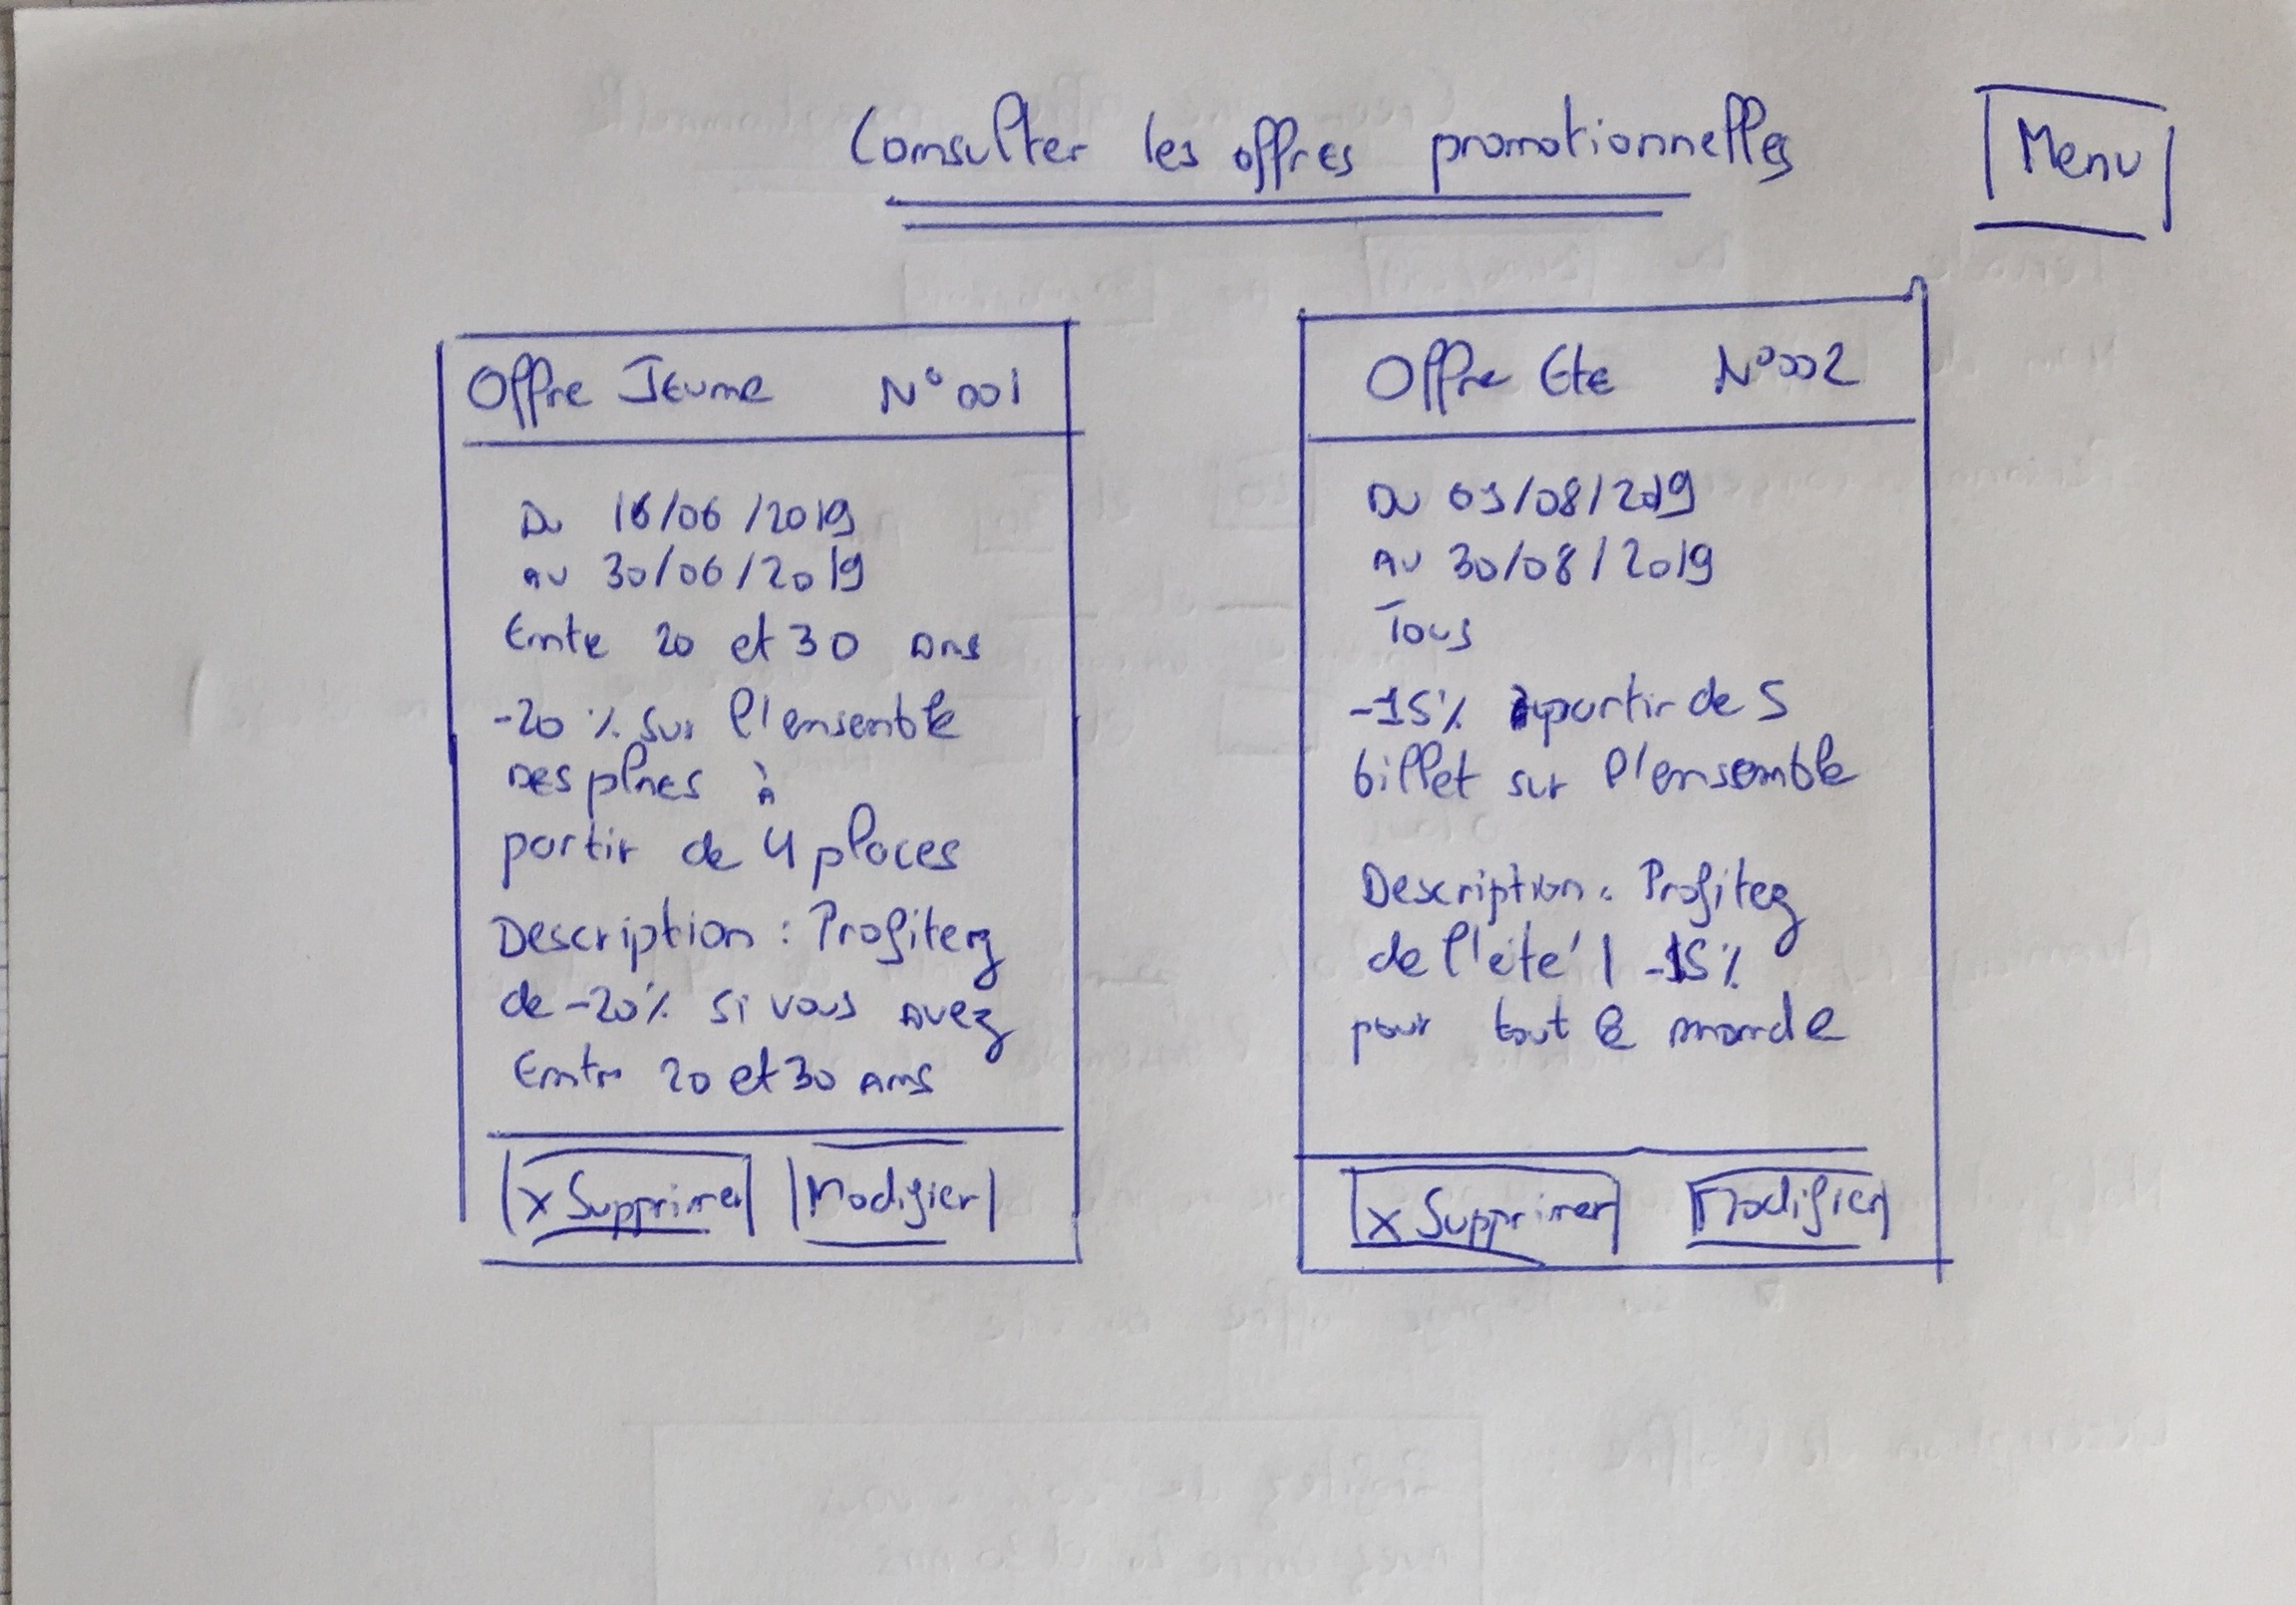 Consulter les offres promotionnelles
Menu
Offre Jeune N°001
Du 16/06/2019
Au 30/06/2019
Entre 20 et 30 ans
-20% sur l'ensemble
Des places à
partir de 4 places
Description : Profitez
de -20% si vous avez
Entre 20 et 30 ans
x Supprimer Modifier
Offre Ete N°002
Du 01/08/2019
Au 30/08/2019
Tous
-15% à partir de 5
billet sur l'ensemble
Description : Profitez
de l'été ! -15%
pour tout le monde
x Supprimer Modifier